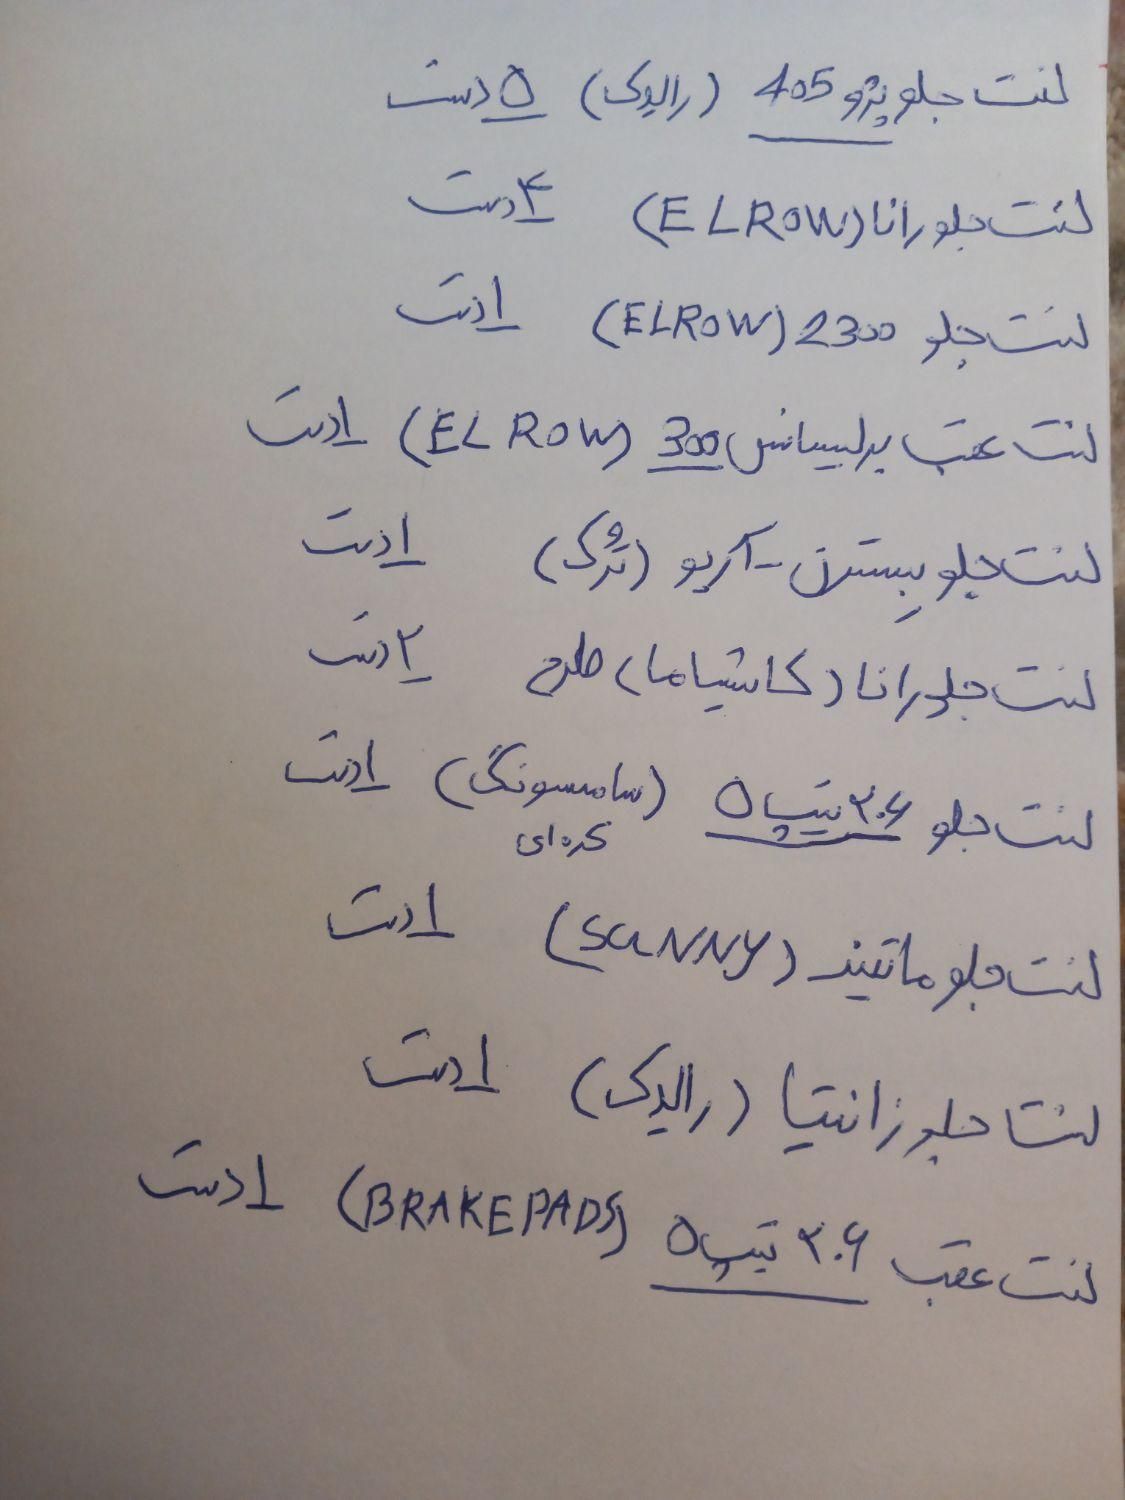 لنت جلو پژو 405 (رالیک) ۵ دست
لنت جلو رانا (ELROW) ۴ دست
لنت جلو 2300 (ELROW) ۱ دست
لنت عقب برلیانس 300 (ELROW) ۱ دست
لنت جلو بسترن - آریو (ترک) ۱ دست
لنت جلو رانا (کاشیاما) طرح ۲ دست
لنت جلو ۲۰۶ تیپ ۵ (سامسونگ) ۱ دست
کره‌ای
لنت جلو ماتیز (SUNNY) ۱ دست
لنت جلو زانتیا (رالیک) ۱ دست
لنت عقب ۲۰۶ تیپ ۵ (BRAKEPADS) ۱ دست